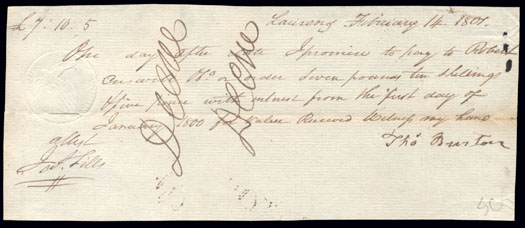 £7: 10: 5
Laurens February 14. 1801.
One day after date I promise to pay to Robert
or order Seven pounds ten shillings
& five pence with interest from the first day of
January 1800 for value Received Witness my hand
Attest
Thos Burton
Deene
Deene